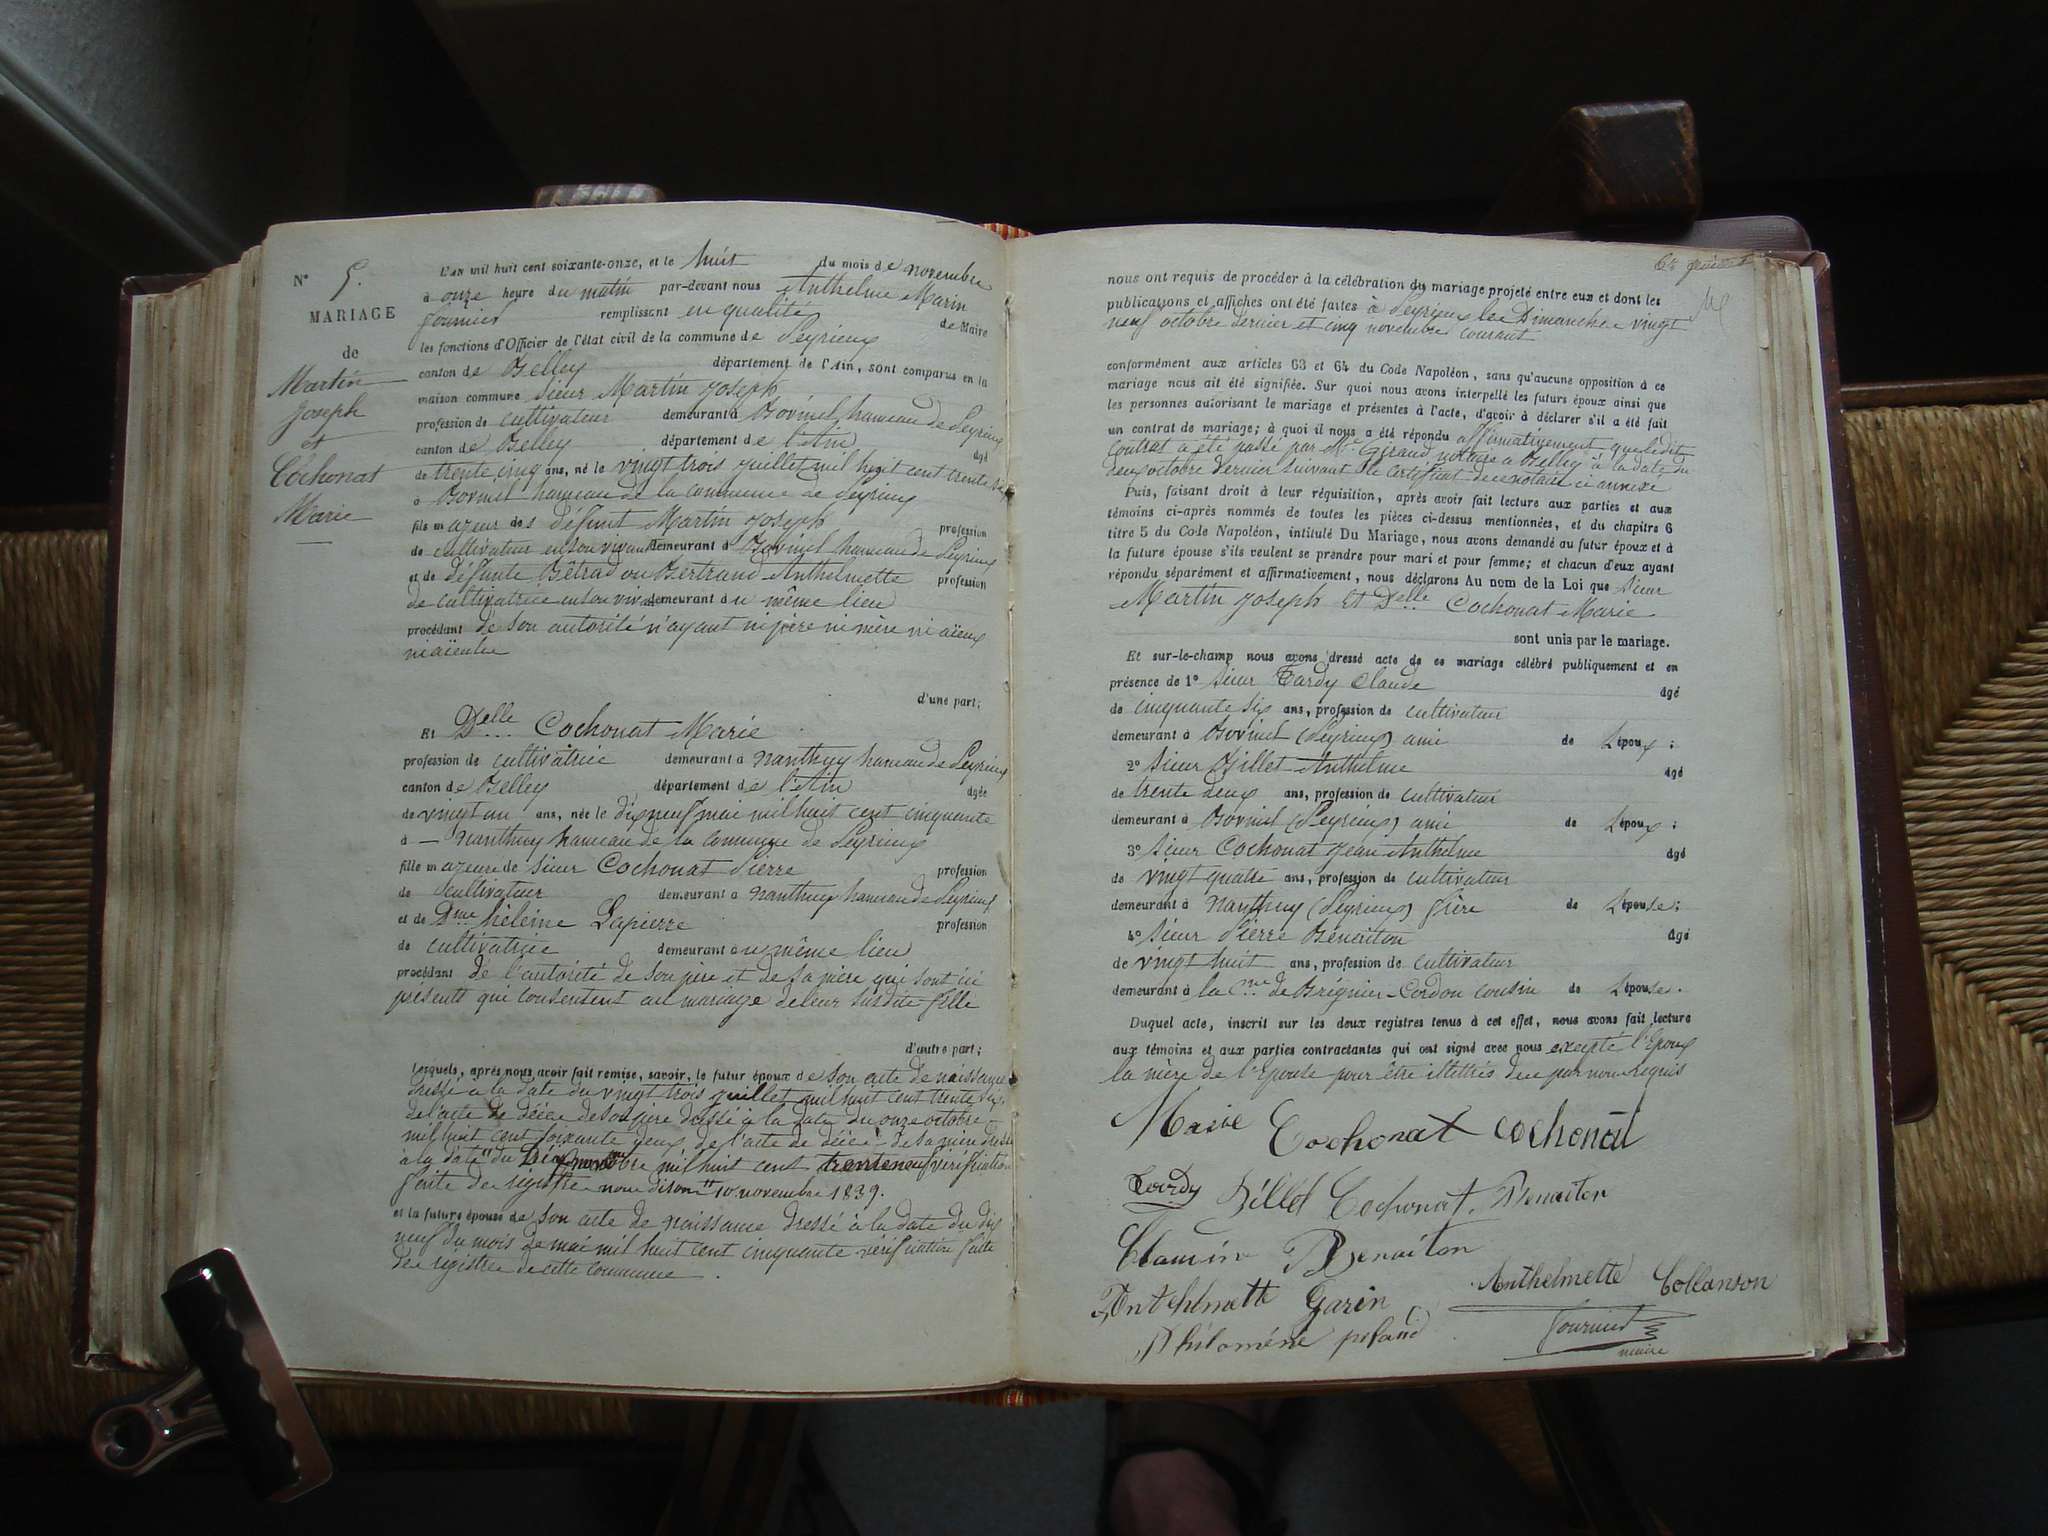 N° 5.
MARIAGE
de
Martin
Joseph
et
Cochonat
Marie
L'AN mil huit cent soixante-onze, et le huit du mois de novembre
à onze heure du matin par-devant nous Anthelme Marin
fournier remplissant en qualité de Maire
les fonctions d'Officier de l'état civil de la commune de Peyrieux
canton de Belley département de l'Ain, sont comparus en la
maison commune sieur Martin Joseph
profession de cultivateur demeurant à Bovinel hameau de Peyrieux
canton de Belley département de l'Ain âgé
de trente cinq ans, né le vingt trois juillet mil huit cent trente six
à Bovinel hameau de la commune de Peyrieux
fils majeur des défunt Martin Joseph profession
de cultivateur en son vivant demeurant à Bovinel hameau de Peyrieux
et de défunte Bétrad ou Bertrand Anthelmette profession
de cultivatrice en son viva demeurant au même lieu
procédant de son autorité n'ayant ni père ni mère ni aïeux
ni aïeules
d'une part;
Et Delle Cochonat Marie
profession de cultivatrice demeurant à Nanthuy hameau de Peyrieux
canton de Belley département de l'Ain âgée
de vingt un ans, née le dix neuf mai mil huit cent cinquante
à — Nanthuy hameau de la commune de Peyrieux
fille majeure de sieur Cochonat Pierre profession
de cultivateur demeurant à Nanthuy hameau de Peyrieux
et de Dme hèleine Lapierre profession
de cultivatrice demeurant au même lieu
procédant de l'autorité de son père et de sa mère qui sont ici
présents qui consentent au mariage de leur susdite fille
d'autre part;
Lesquels, après nous avoir fait remise, savoir, le futur époux de son acte de naissance
dressé à la date du vingt trois juillet mil huit cent trente six,
de l'acte de décès de son père dressé à la date du onze octobre
mil huit cent soixante deux de l'acte de décès de sa mère dressé
à la date du mil huit cent trente neuf vérification
faite des registres nous disons 10 novembre 1839.
et la future épouse de son acte de naissance dressé à la date du dix
neuf du mois de mai mil huit cent cinquante vérification faite
des régistres de cette commune.
nous ont requis de procéder à la célébration du mariage projeté entre eux et dont les
publications et affiches ont été faites à Peyrieux les Dimanches vingt
neuf octobre dernier et cinq novembre courant
conformément aux articles 63 et 64 du Code Napoléon, sans qu'aucune opposition à ce
mariage nous ait été signifiée. Sur quoi nous avons interpellé les futurs époux ainsi que
les personnes autorisant le mariage et présentes à l'acte, d'avoir à déclarer s'il a été fait
un contrat de mariage; à quoi il nous a été répondu affirmativement que ledit
contrat a été passé par Me Giraud notaire à Belley à la date du
deux octobre dernier suivant le certificat de ce notaire ci annexé
Puis, faisant droit à leur réquisition, après avoir fait lecture aux parties et aux
témoins ci-après nommés de toutes les pièces ci-dessus mentionnées, et du chapitre 6
titre 5 du Code Napoléon, intitulé Du Mariage, nous avons demandé au futur époux et à
la future épouse s'ils veulent se prendre pour mari et pour femme; et chacun d'eux ayant
répondu séparément et affirmativement, nous déclarons Au nom de la Loi que sieur
Martin Joseph et Delle Cochonat Marie
sont unis par le mariage.
Et sur-le-champ nous avons dressé acte de ce mariage célébré publiquement et en
présence de 1° sieur Tardy Claude âgé
de cinquante six ans, profession de cultivateur
demeurant à Bovinel (Peyrieux) ami de l'époux;
2° sieur Billet Anthelme âgé
de trente deux ans, profession de cultivateur
demeurant à Bovinel (Peyrieux) ami de l'époux;
3° sieur Cochonat Jean Anthelme âgé
de vingt quatre ans, profession de cultivateur
demeurant à Nanthuy (Peyrieux) frère de l'épouse;
4° sieur Pierre Bénaiton âgé
de vingt huit ans, profession de cultivateur
demeurant à la cne de Brégnier-Cordon cousin de l'épouse.
Duquel acte, inscrit sur les deux registres tenus à cet effet, nous avons fait lecture
aux témoins et aux parties contractantes qui ont signé avec nous excepté l'époux
la mère de l'épouse pour être illettrés de ce par nous requis
Marie Cochonat cochonat
Tardy Billet Cochonat. Benaiton
Benaiton
Anthelmette Garin Anthelmette Collanson
Philomène
fournier
maire